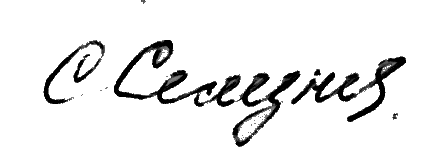 С. Селезнев